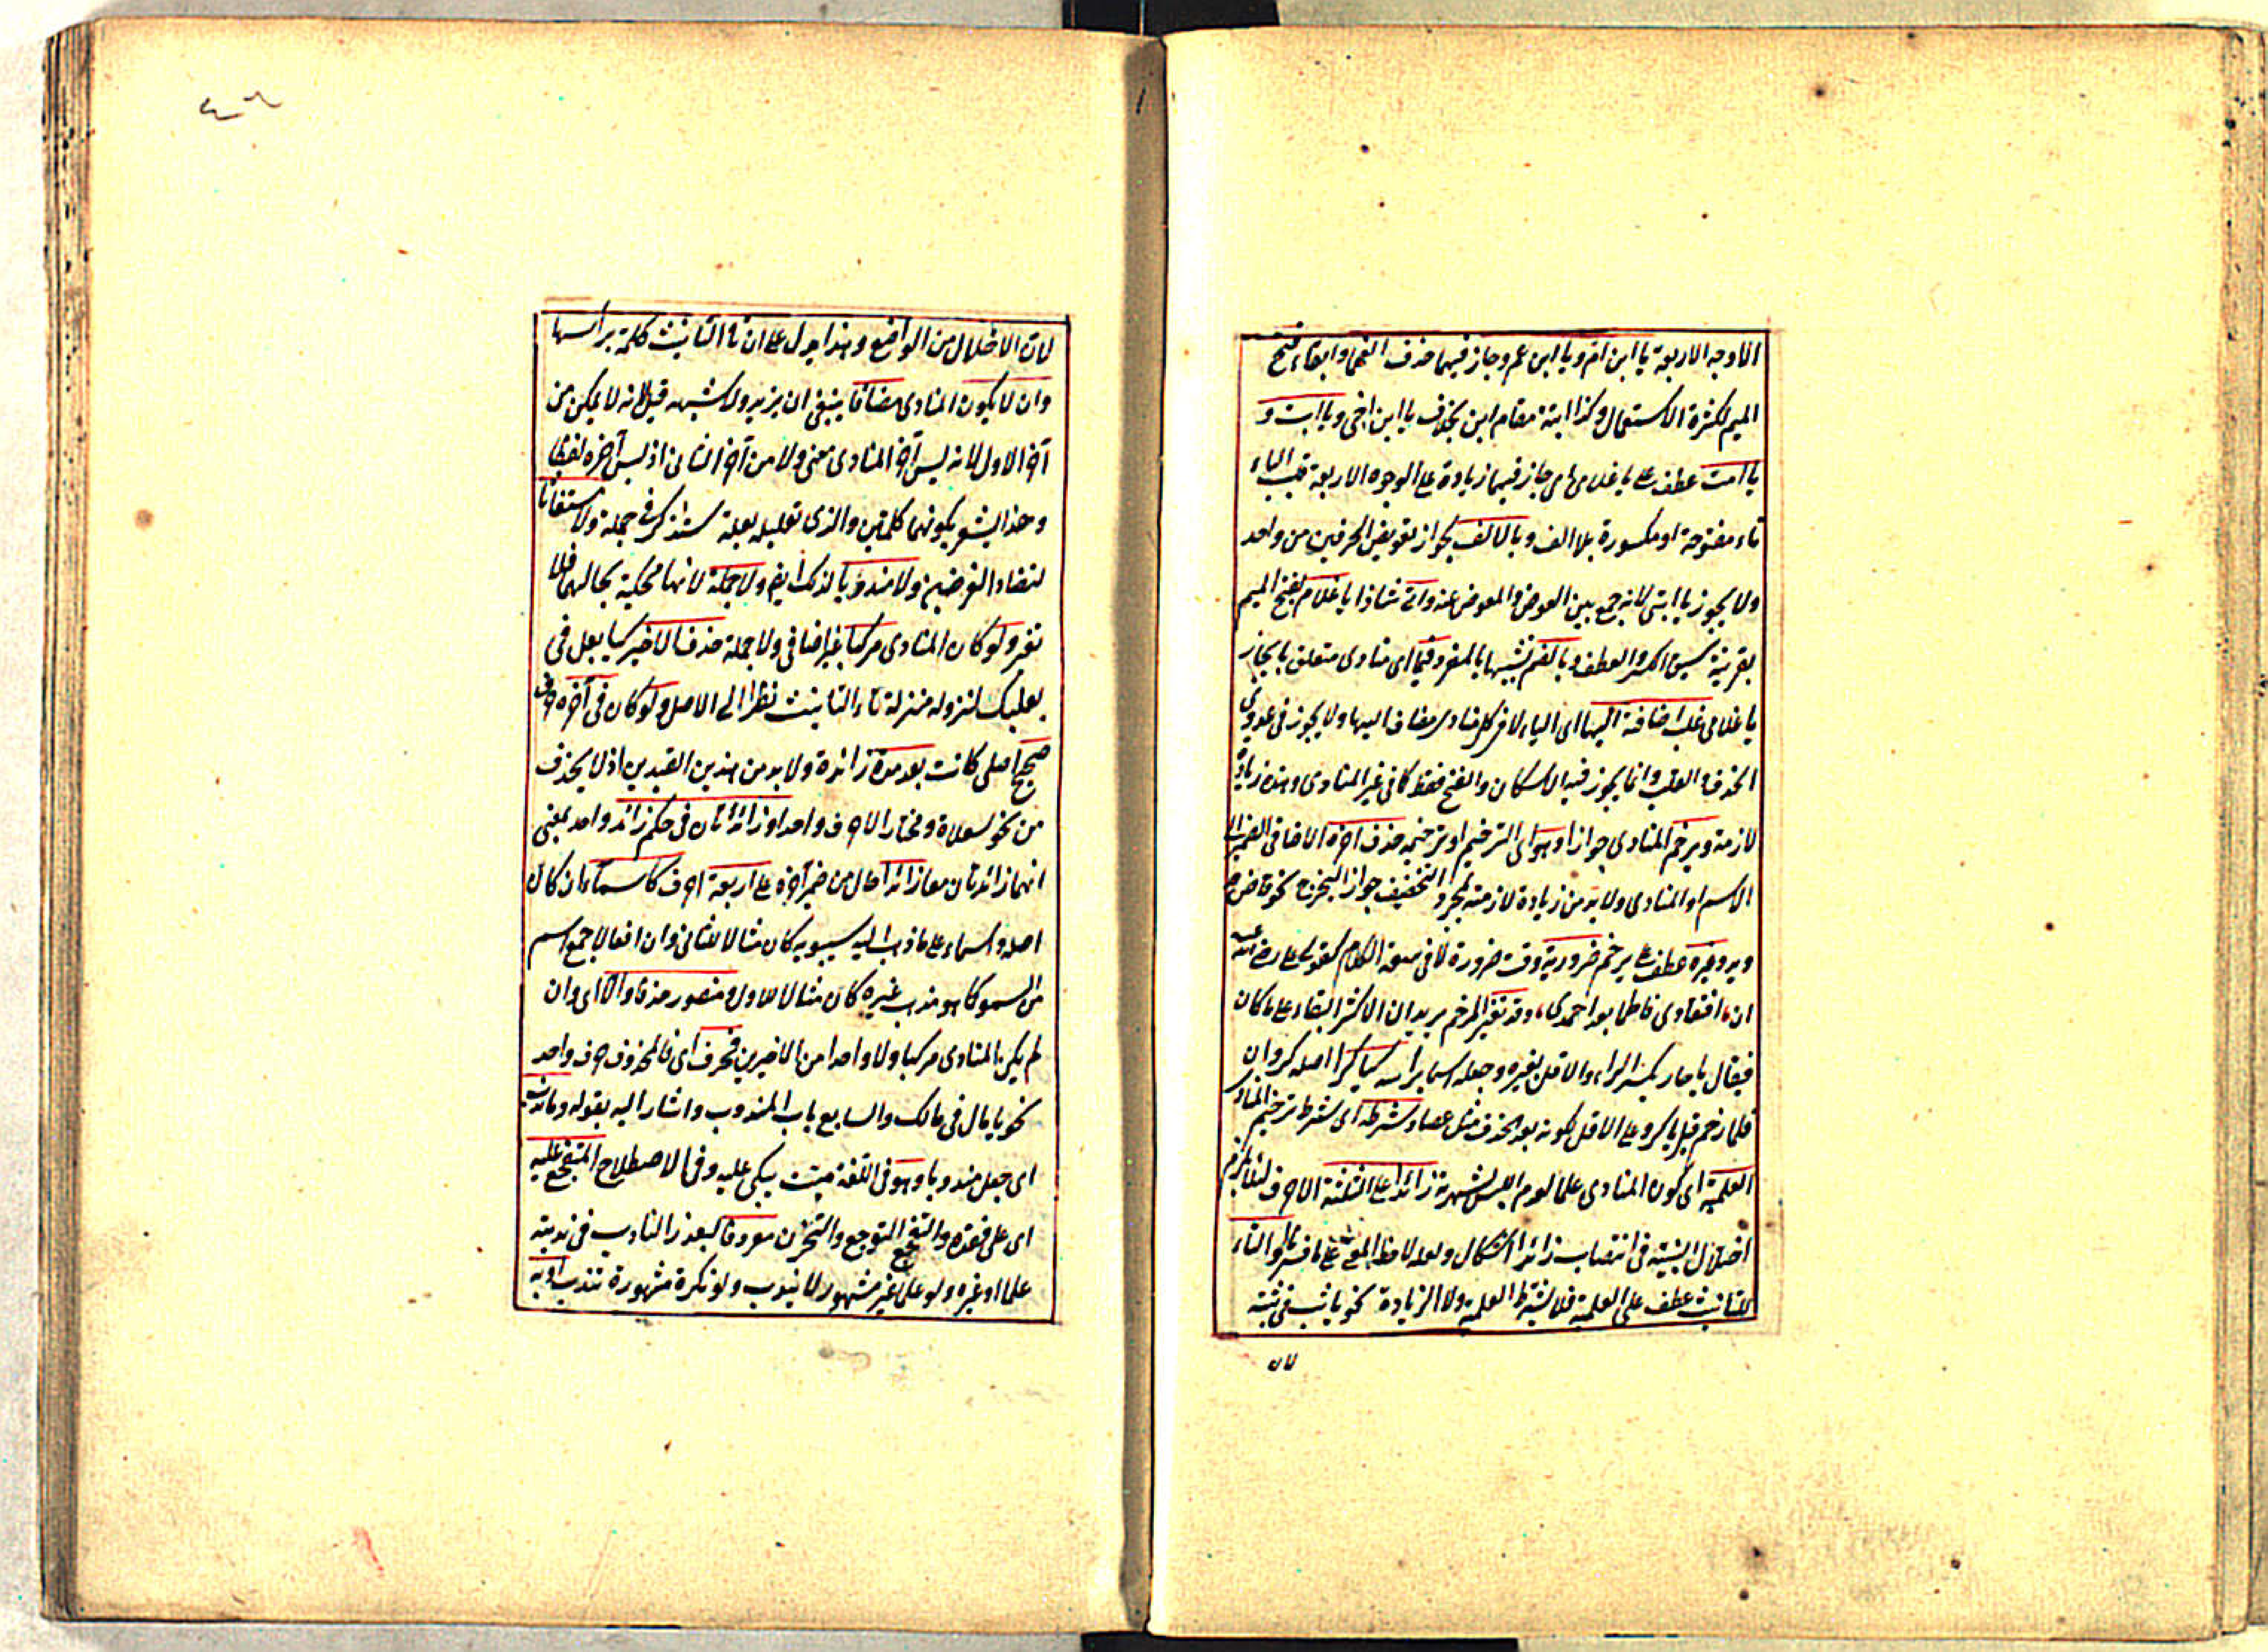 الاوجه الاربعة يا ابن ام ويا ابن عم وجاز فيهما حذف الفهما وابقاء فتح
الميم لكثرة الاستعمال وكذا ابنة مقام ابن بخلاف يا ابن اخى ويا ابت و
يا امت عطف على يا غلامى اى جاز فيهما زيادة على الوجوه الاربعة قلب الياء
تاء مفتوحة او مكسورة بلا الف وبالالف بجواز تعويض الحرفين من واحد
ولا يجوز يا ابتى لانه جمع بين العوض والمعوض عنه واتى شاذا يا غلام بفتح الميم
بقرينة سبق الكسر والعطف وبالضم تشبيها بالمفرد فيما اى منادى متعلق بالجار
يا غلامى غلب اضافته اليها اى الياء لا فى كل منادى مضاف اليها ولا يجوز فى عدوى
الحذف والقلب وانما يجوز فيه الاسكان والفتح فقط كما فى غير المنادى وهذه زيادة
لازمة ويرخم المنادى جوازا وهو اى الترخيم او ترخيمه حذف آخره الاضافى الضمير الى
الاسم او المنادى ولا بد من زيادة لازمته لمجرد التخفيف جوازا ليخرج نحو قاض
ويد وغيره عطف على يرخم ضرورية وقت ضرورة لا فى سعة الكلام كقول على رضى الله عنه
ان افتقادى فاطما بعد احمد وقد تغير المرخم يريد ان الاكثر البقاء على ما كان
فيقال يا حار بكسر الراء والاقل تغيره وجعله اسما برأسه كيا كرا اصله كروان
فلما رخم قيل يا كرو على الاقل لكونه بعد الحذف مثل عصا وشرطه اى شرط ترخيم المنادى
العلمية اى كون المنادى علما لعدم اللبس لشهرته زائدا على الثلثة الاحرف لئلا يلزم
اختلال البنية فى انتصاب زائدا اشكال ولعله لاحظ المعنى على ما فسر او التاء
للتانيث عطف على العلمية فلا يشترط العلمية ولا الزيادة نحو يا ثب فى ثبة
لان
لان الاخلال من الواضع وهذا يدل على ان تا التانيث كلمة برأسها
وان لا يكون المنادى مضافا ينبغى ان يزيد ولا شبهه قيل لانه لا يمكن من
آخر الاول لانه ليس آخر المنادى معنى ولا من آخر الثانى اذ ليس آخره لفظا
وهذا يشعر بكونهما كلمتين والذى تعليله بعلة ستذكر فى جملة ولا مستغاثا
لتضاد الغرضين ولا مندوبا لذلك ايضا ولا جملة لانها محكية بحالها فلا
تغير ولو كان المنادى مركبا غير اضافى ولا جملة حذف الاخير كيا بعل فى
بعلبك لنزوله منزلة تاء التانيث نظرا الى الاصل ولو كان فى آخره حرف
صحيح اصلى كانت بعد مدة زائدة ولا بد من هذين القيدين اذ لا يحذف
من نحو سعلاة ومختار الا حرف واحد او زائدتان فى حكم زائد واحد بمعنى
انهما زائدتان معا زائدا حال من ضمير آخره على اربعة احرف كاسماء ان كان
اصله واسماء على ما ذهب اليه سيبويه كان مثالا للثانى وان افعالا جمع اسم
من السمو كما هو مذهب غيره كان مثالا للاول ومنصور حذفا والا اى وان
لم يكن المنادى مركبا ولا واحدا من الاخيرين فحرف اى فالمحذوف حرف واحد
نحو يا مال فى مالك والسابع باب المندوب واشار اليه بقوله وما ندب
اى جعل مندوبا وهو فى اللغة ميت يبكى عليه وفى الاصطلاح المتفجع عليه
اى على فقده والتفجع التوجع والتحزن معروفا ليعذر النادب فى ندبته
علما او غيره ولو علما غير مشهور لا يندب ولو نكرة مشهورة تندب او به